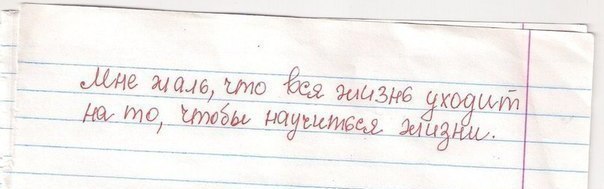 Мне жаль, что вся жизнь уходит
на то, чтобы научиться жизни.